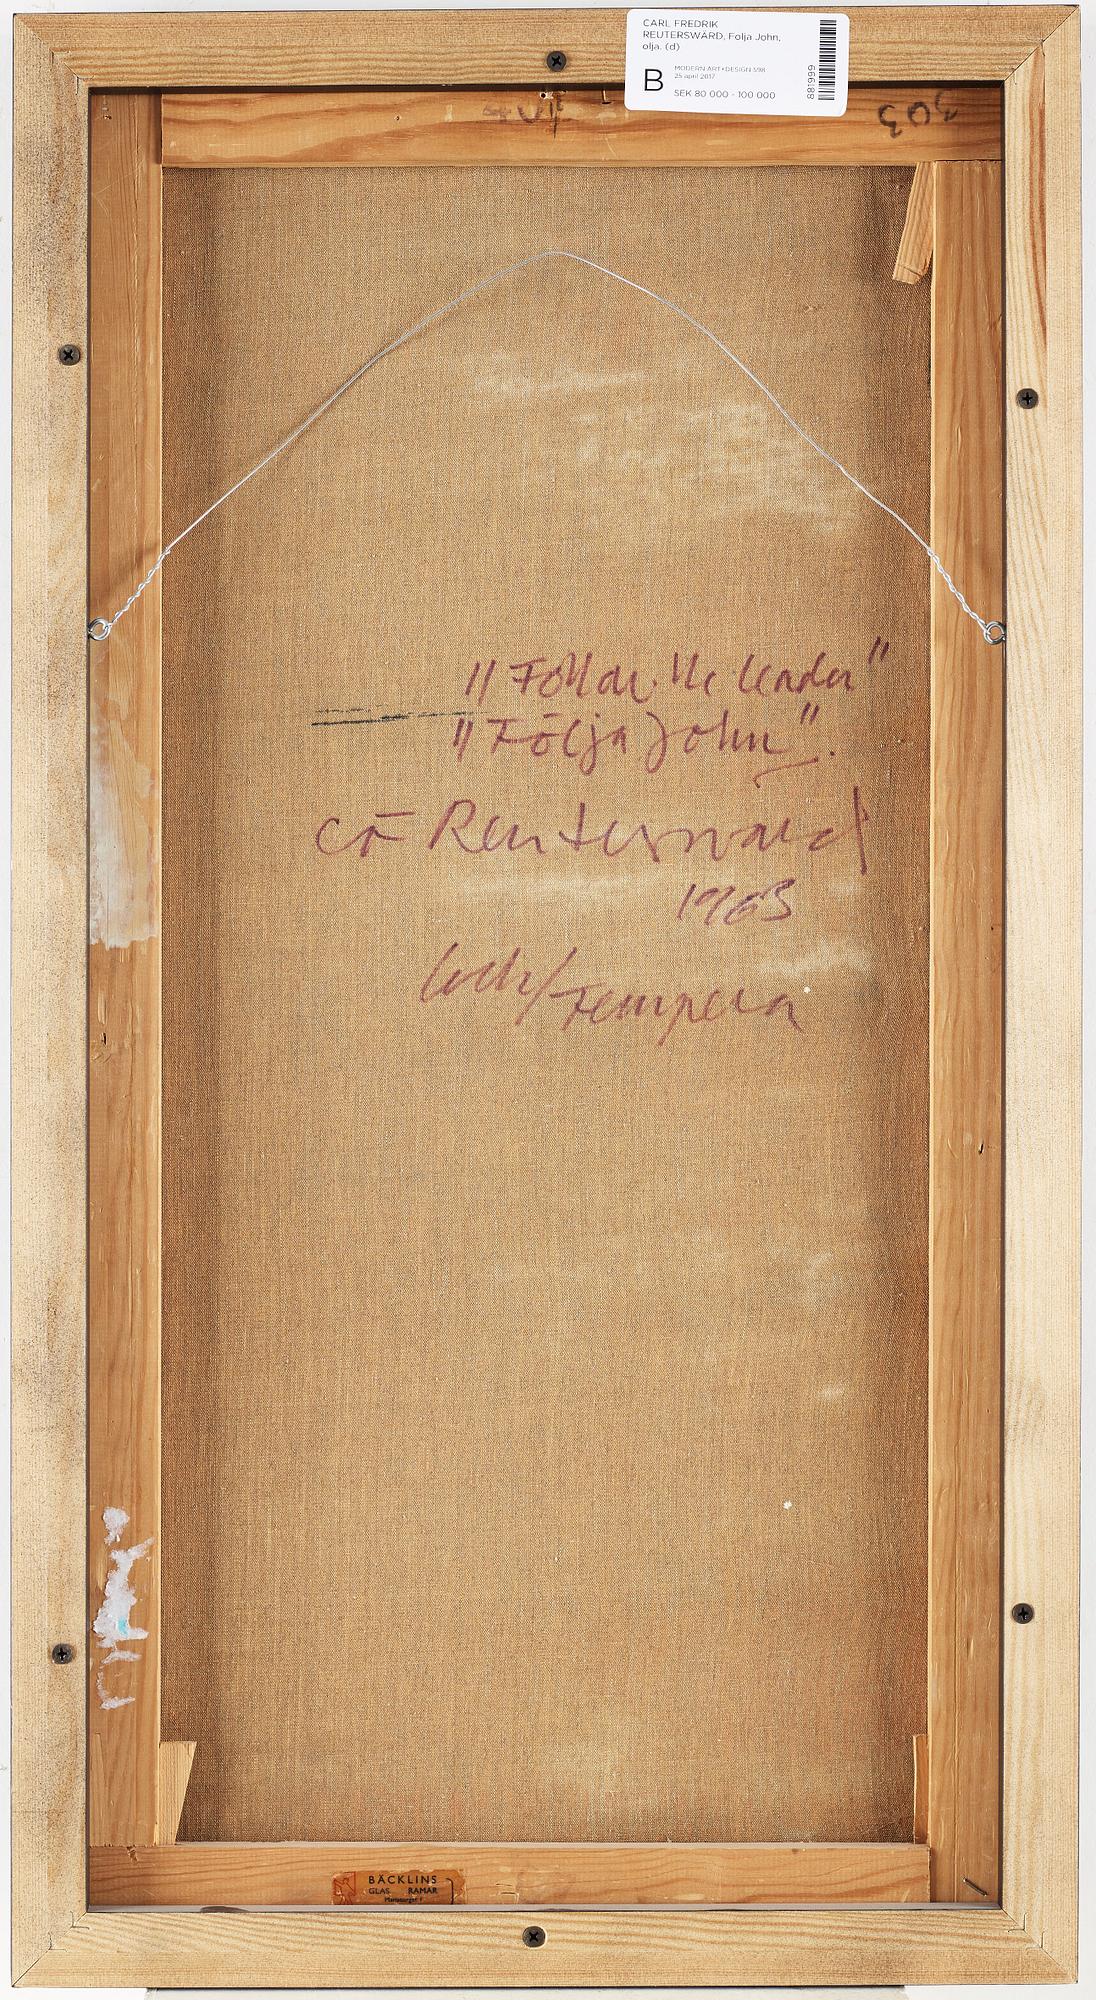 CARL FREDRIK
REUTERSWÄRD, Följa John,
olja. (d)
B
MODERN ART+DESIGN 598
25 april 2017
SEK 80 000 - 100 000
881999
303
"Follow the leader"
"Följa John".
CF Reuterswärd
1963
lack/Tempera
BÄCKLINS
GLAS RAMAR